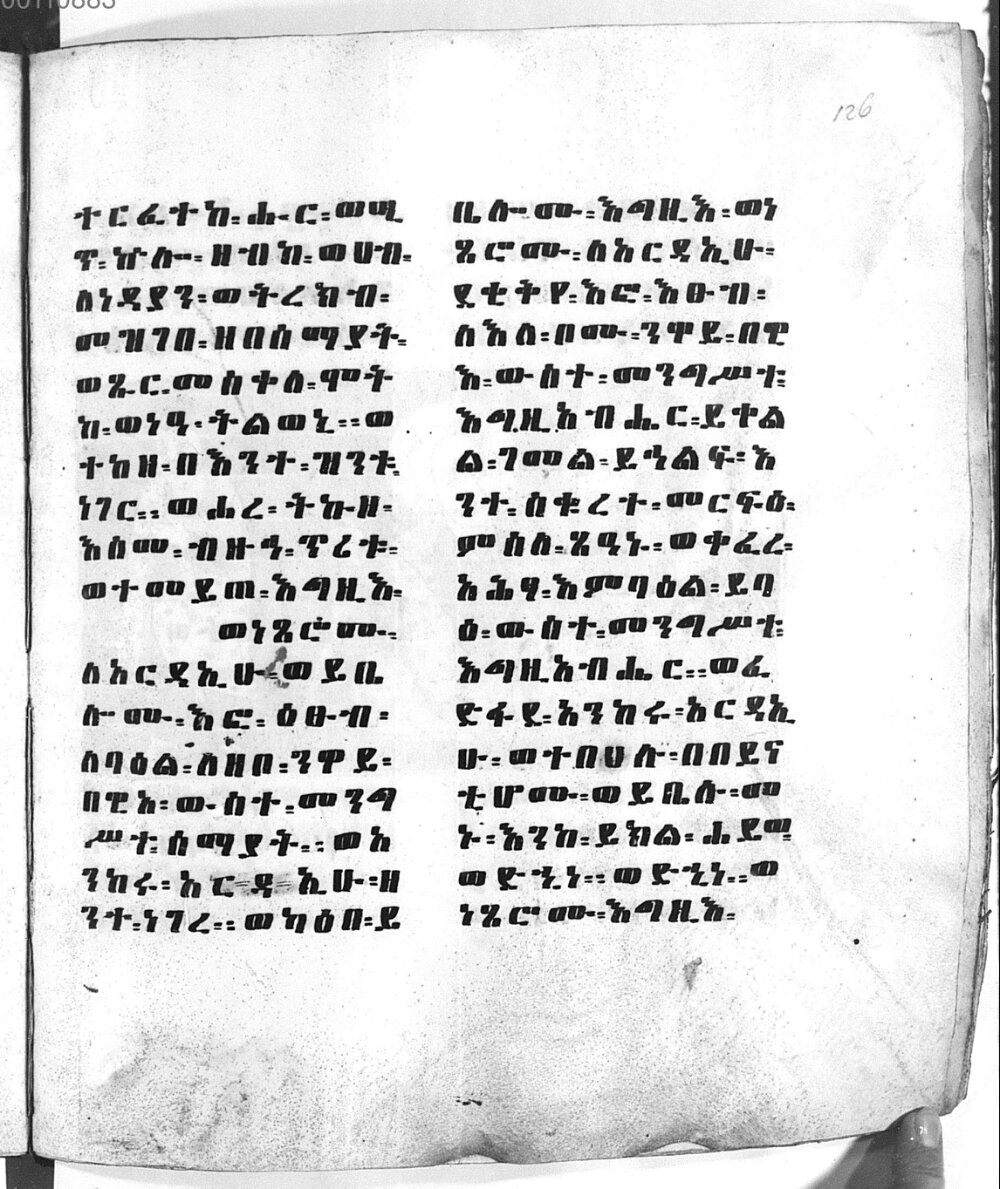 00110883
126
ተርፈተከ፡ሑር፡ወሚ
ጥ፡ኵሎ፡ዘብከ፡ወሀብ፡
ለነዳያን፡ወትረክብ፡
መዝገበ፡ዘበሰማያት፡
ወጹር፡መስቀለ፡ሞት
ከ፡ወነዓ፡ትልወኒ።ወ
ተከዘ፡በእንተ፡ዝንቱ፡
ነገር።ወሖረ፡ትኩዘ፡
እስመ፡ብዙኅ፡ጥረቱ፡
ወተመይጠ፡እግዚእ፡
ወነጸሮሙ፡
ለአርዳኢሁ፡ወይቤ
ሎሙ፡እፎ፡ዕፁብ፡
ለባዕል፡ለዘቦ፡ንዋይ፡
በዊአ፡ውስተ፡መንግ
ሥተ፡ሰማያት።ወአ
ንከሩ፡አርዳኢሁ፡ዘ
ንተ፡ነገረ።ወካዕበ፡ይ
ቤሎሙ፡እግዚእ፡ወነ
ጸሮሙ፡ለአርዳኢሁ፡
ደቂቅየ፡እፎ፡እፁብ፡
ለእለ፡ቦሙ፡ንዋይ፡በዊ
እ፡ውስተ፡መንግሥተ፡
እግዚአብሔር፡ይቀል
ል፡ገመል፡ይኅልፍ፡እ
ንተ፡ስቁረተ፡መርፍዕ፡
ምስለ፡ጼዓኑ፡ወቀፈረ፡
አሕፃ፡እምባዕል፡ይባ
ዕ፡ውስተ፡መንግሥተ፡
እግዚአብሔር።ወፈ
ድፋደ፡አንከሩ፡አርዳኢ
ሁ፡ወተበሀሉ፡በበይና
ቲሆሙ፡ወይቤሉ፡መ
ኑ፡እንከ፡ይክል፡ሐይወ፡
ወድኂነ።ወድኂነ።ወ
ነጸሮሙ፡እግዚእ፡